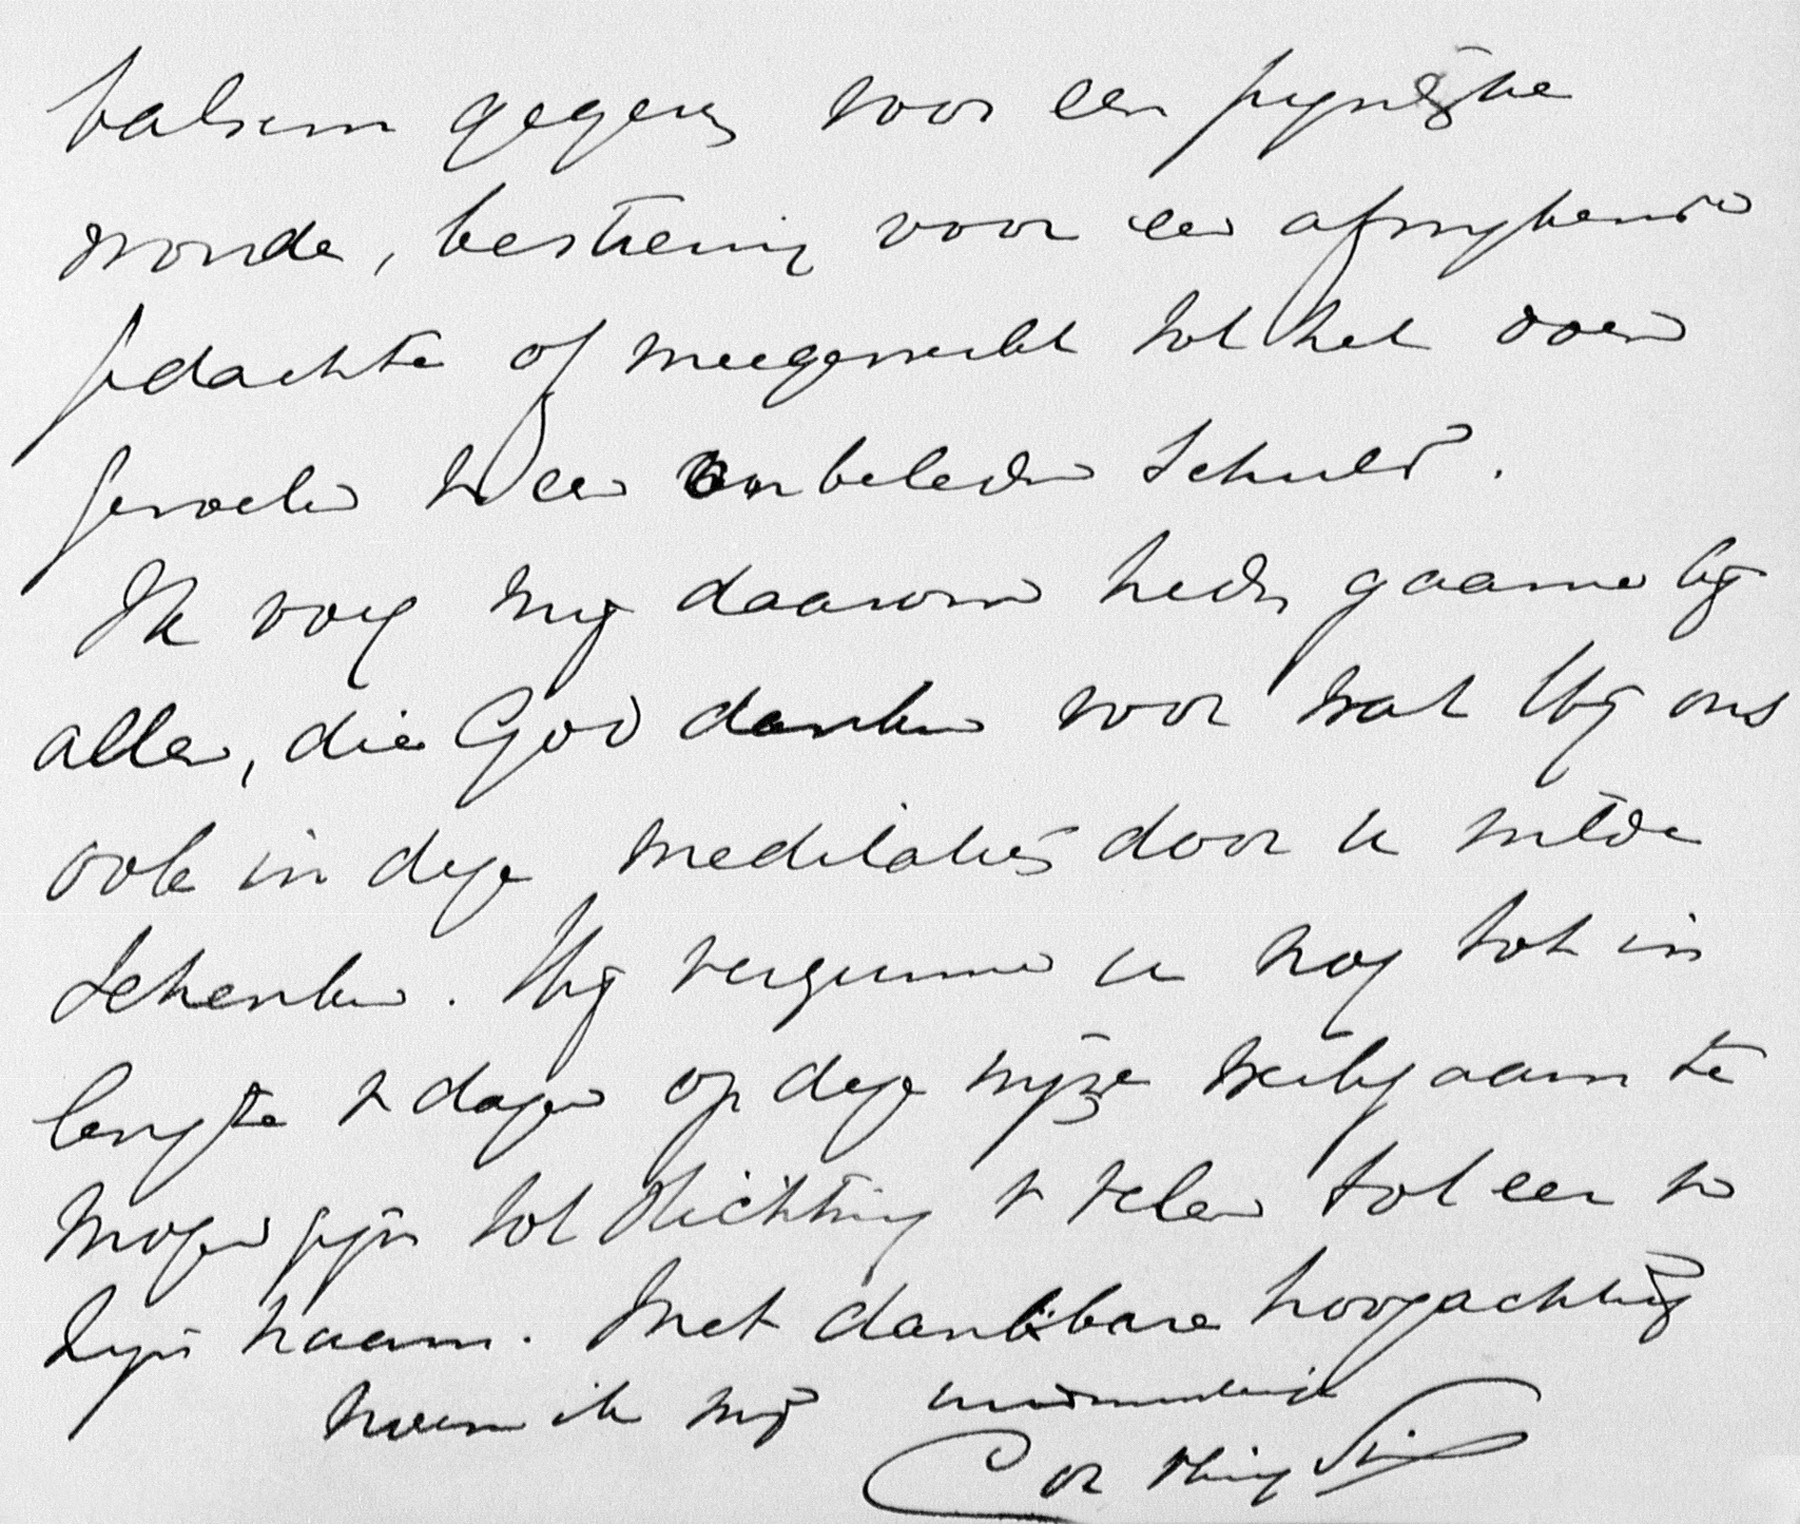 balsem gegeven voor een pijnlijke
wonde, bestiering voor een afwijkende
gedachte of meegewerkt tot het doen
gevoelen v. een onbeleden schuld.
Ik voeg mij daarom heden gaarne bij
allen, die God danken voor wat Hij ons
ook in deze meditaties door u wilde
schenken. Hij vergunne u nog tot in
lengte v. dagen op deze wijze werkzaam te
mogen zijn tot stichting v. velen tot eer v.
Zijn naam. Met dankbare hoogachting
noem ik mij